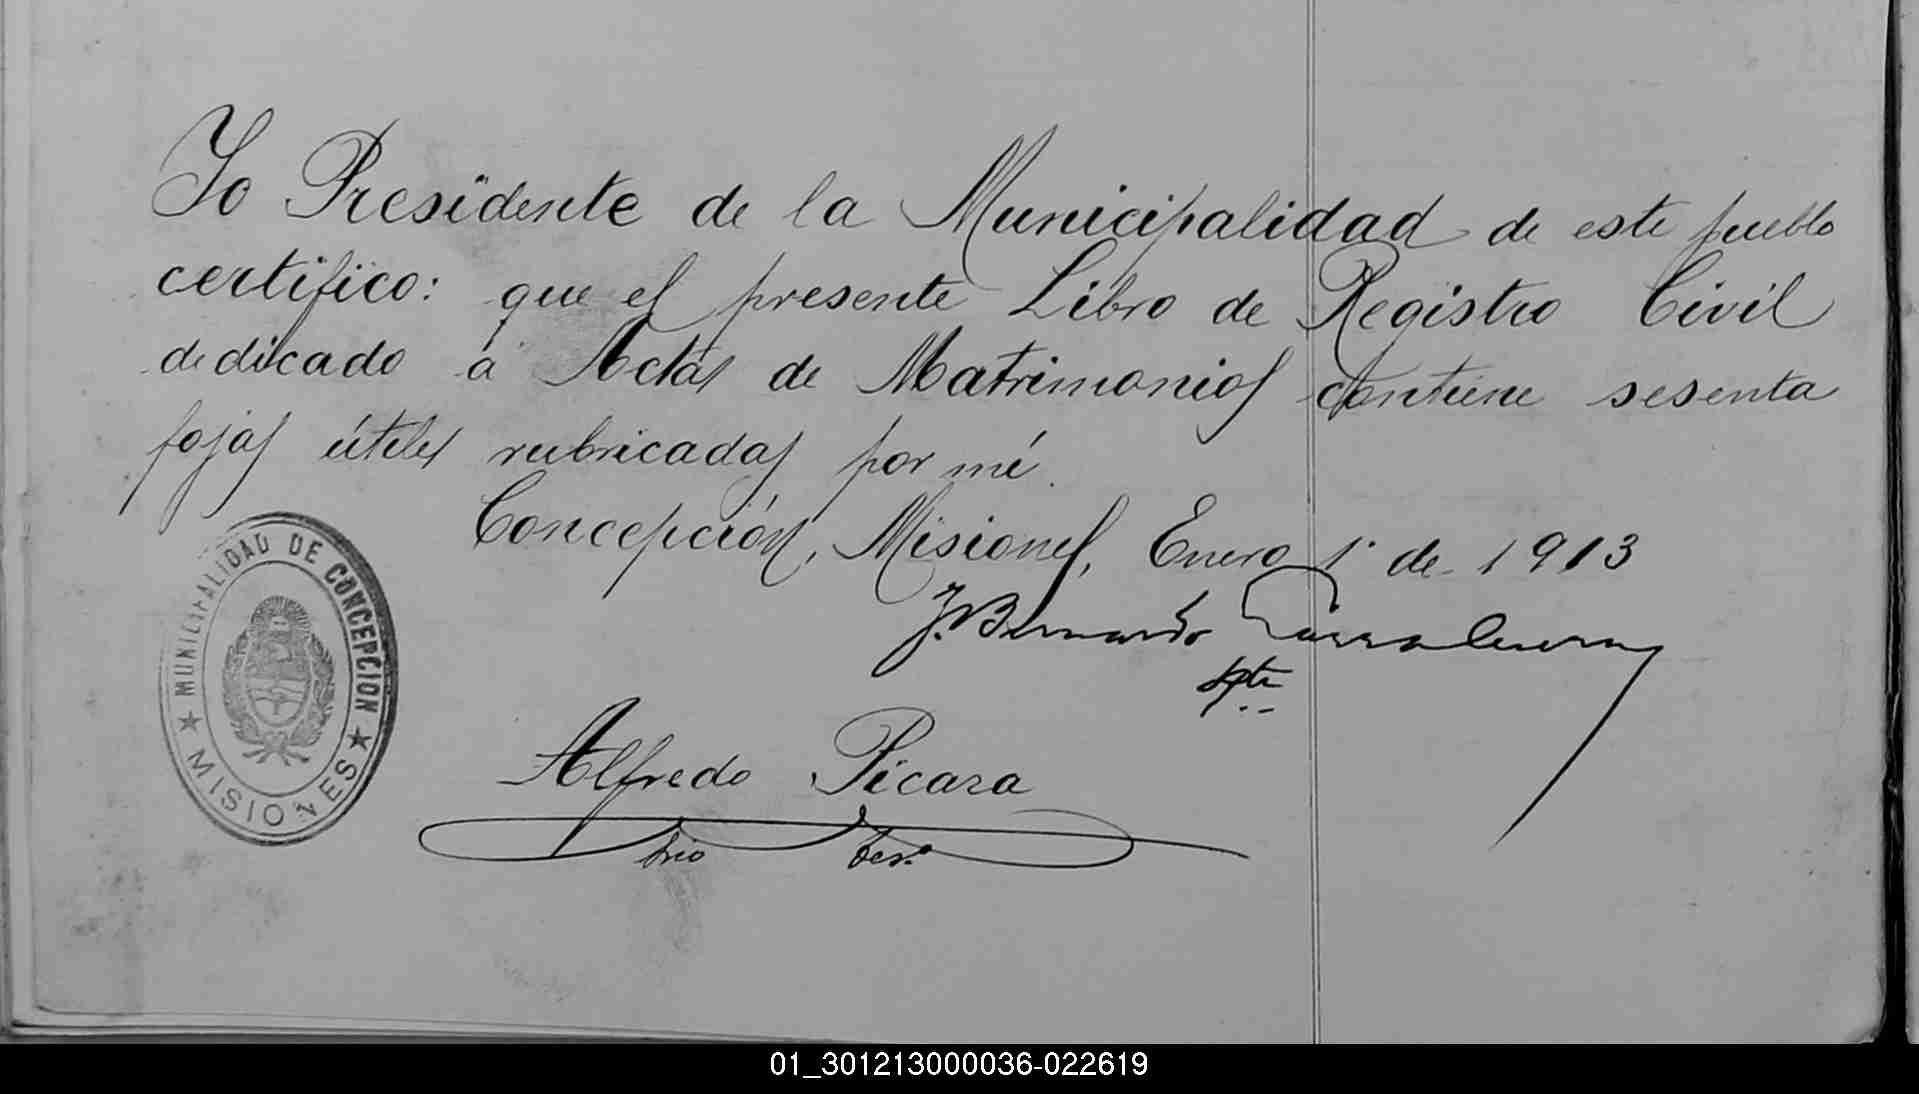 Yo Presidente de la Municipalidad de este pueblo
certifico: que el presente Libro de Registro Civil
dedicado á Actas de Matrimonios contiene sesenta
fojas útiles rubricadas por mí.
Concepción, Misiones, Enero 1° de 1913
J. Bernardo
Pte
MUNICIPALIDAD DE CONCEPCION
★ MISIONES ★
Alfredo Picara
Srio Tes.º
01_301213000036-022619